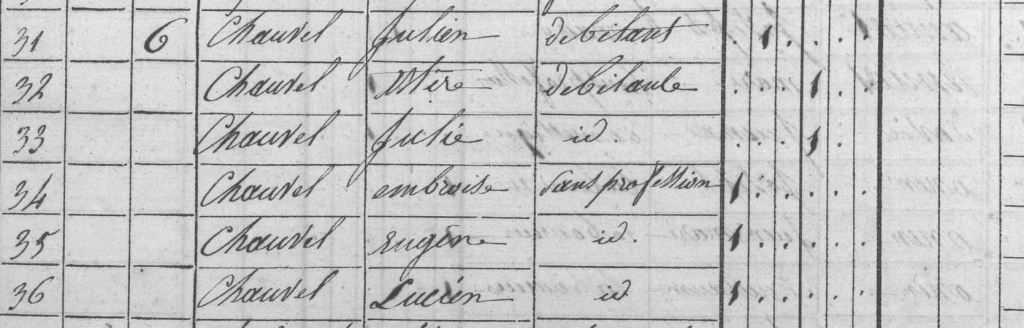 31 6 Chauvel Julien debitant . 1 . . . .
32 Chauvel débitante . . . 1 .
33 Chauvel Julie id. . . . 1 .
34 Chauvel embroise sans profession 1 . . . . .
35 Chauvel Eugène id. 1 . . . . .
36 Chauvel Lucien id 1 . . . . .